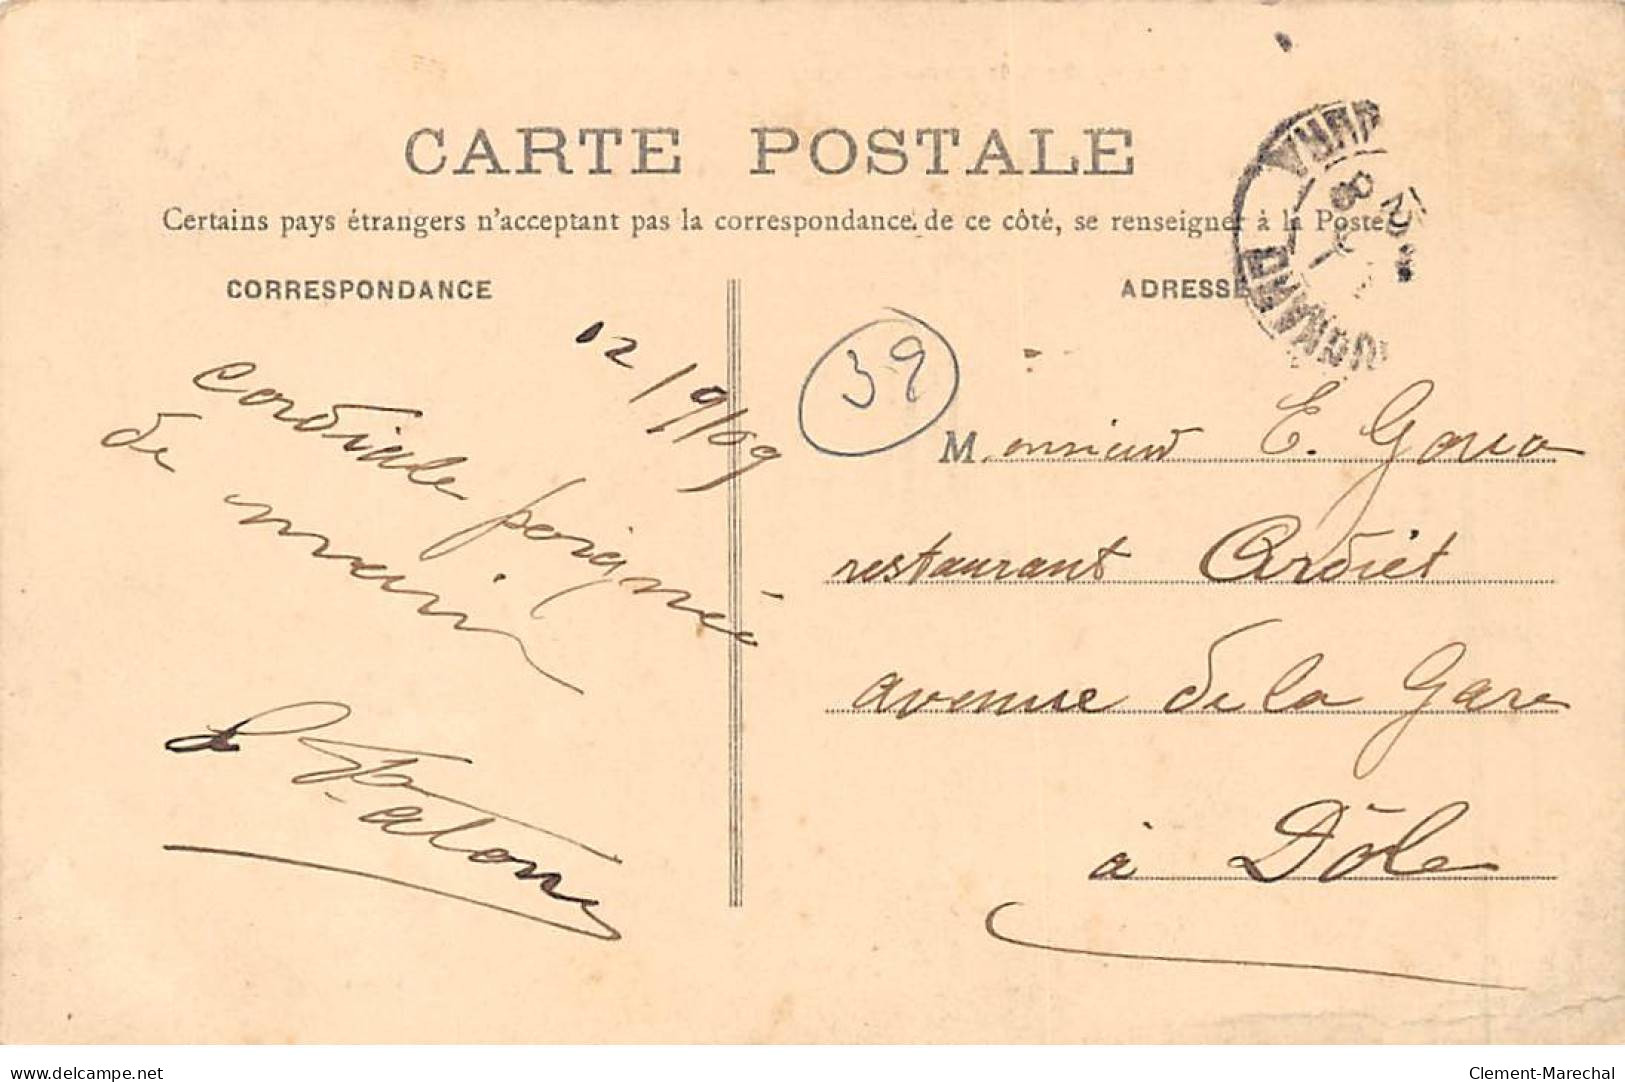 CARTE POSTALE
Certains pays étrangers n'acceptant pas la correspondance de ce côté, se renseigner à la Poste
CORRESPONDANCE
ADRESSE
12/9/09
cordiale poignée
de main
39
Monsieur E.
restaurant Ardiet
avenue de la Gare
à Dôle
JURA
delcampe.net
Clement-Marechal